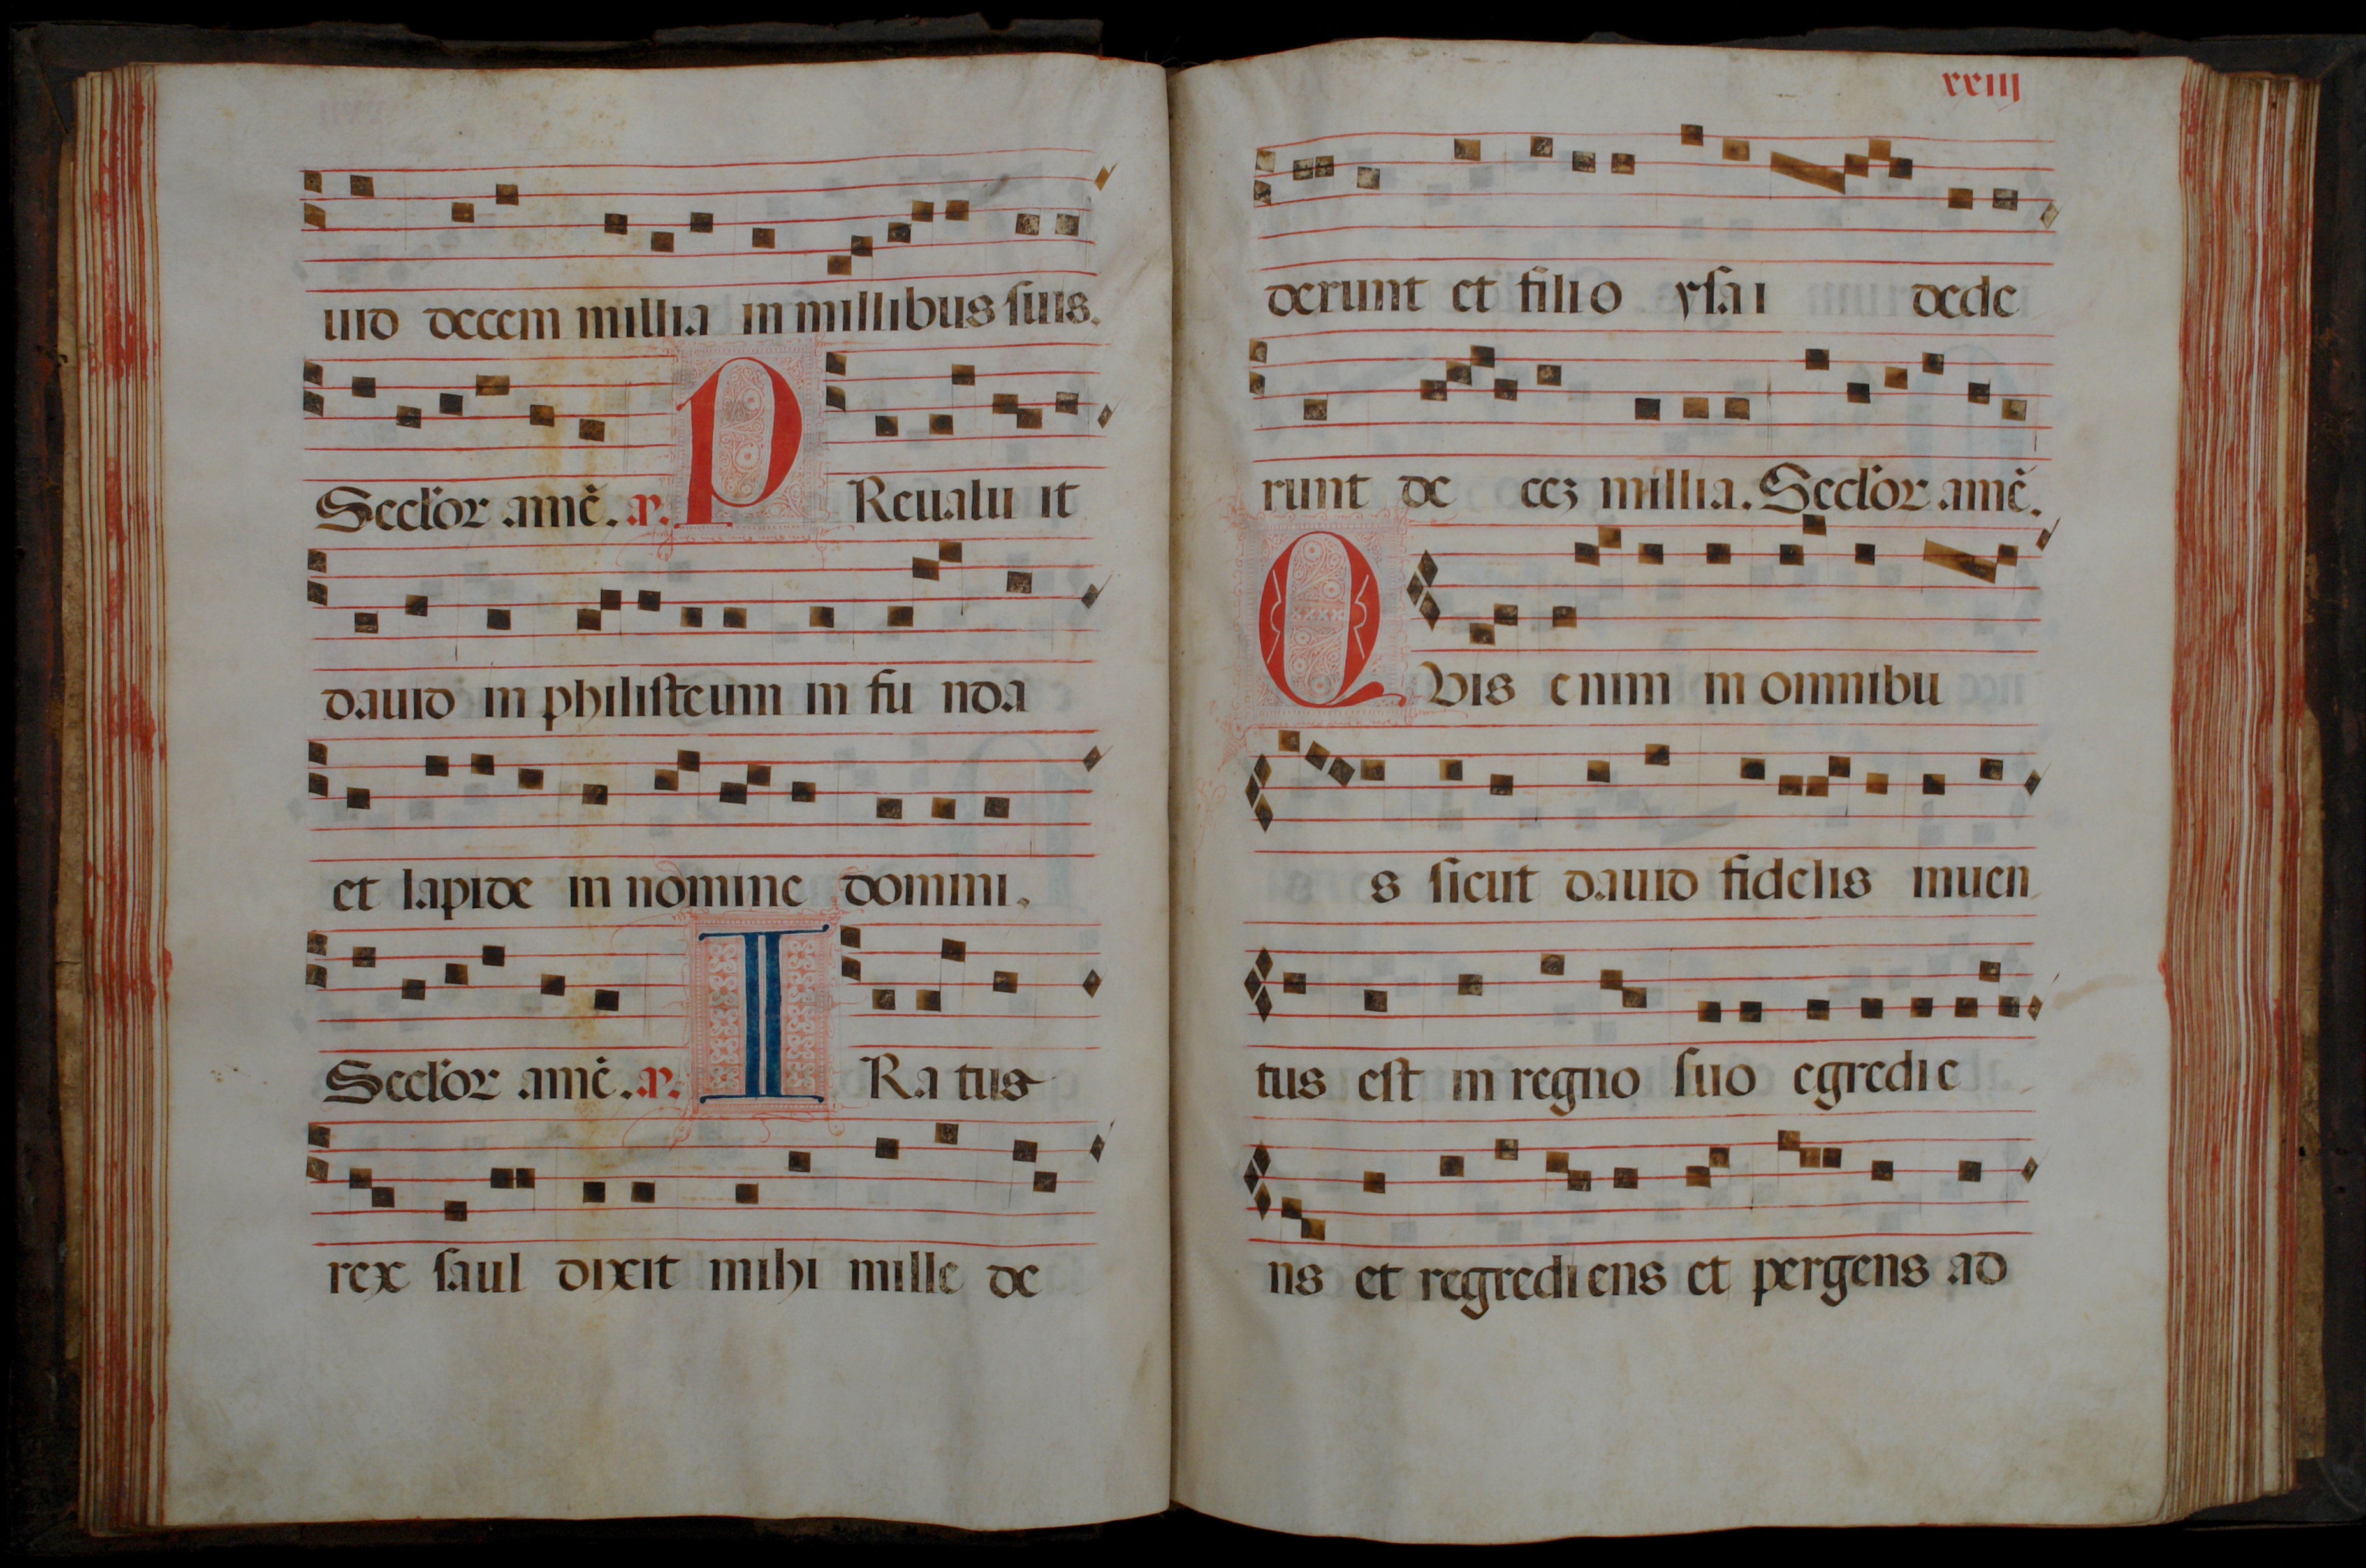 uid decem millia in millibus suis.
Seclor amē. a. PReualu it
dauid in philisteum in fu nda
et lapide in nomine domini.
Seclor amē. a. IRa tus
rex saul dixit mihi mille de
xxiij
derunt et filio ysai dede
runt de cez millia. Seclor amē.
QVis enim in omnibu
s sicut dauid fidelis inuen
tus est in regno suo egredie
ns et regrediens et pergens ad